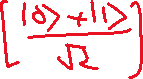 [ |0> + |1> / √2 ]